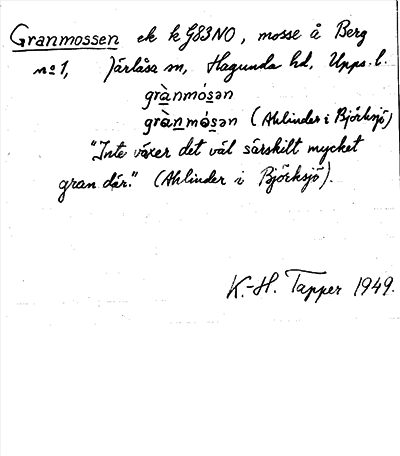 Granmossen ek k G83NO, mosse å Berg
nº 1, Järlåsa sn, Hagunda hd, Upps. l.
grànmósən
grànmósən (Ahlinder i Björksjö)
"Inte växer det väl särskilt mycket
gran där." (Ahlinder i Björksjö).
K.-H. Tapper 1949.